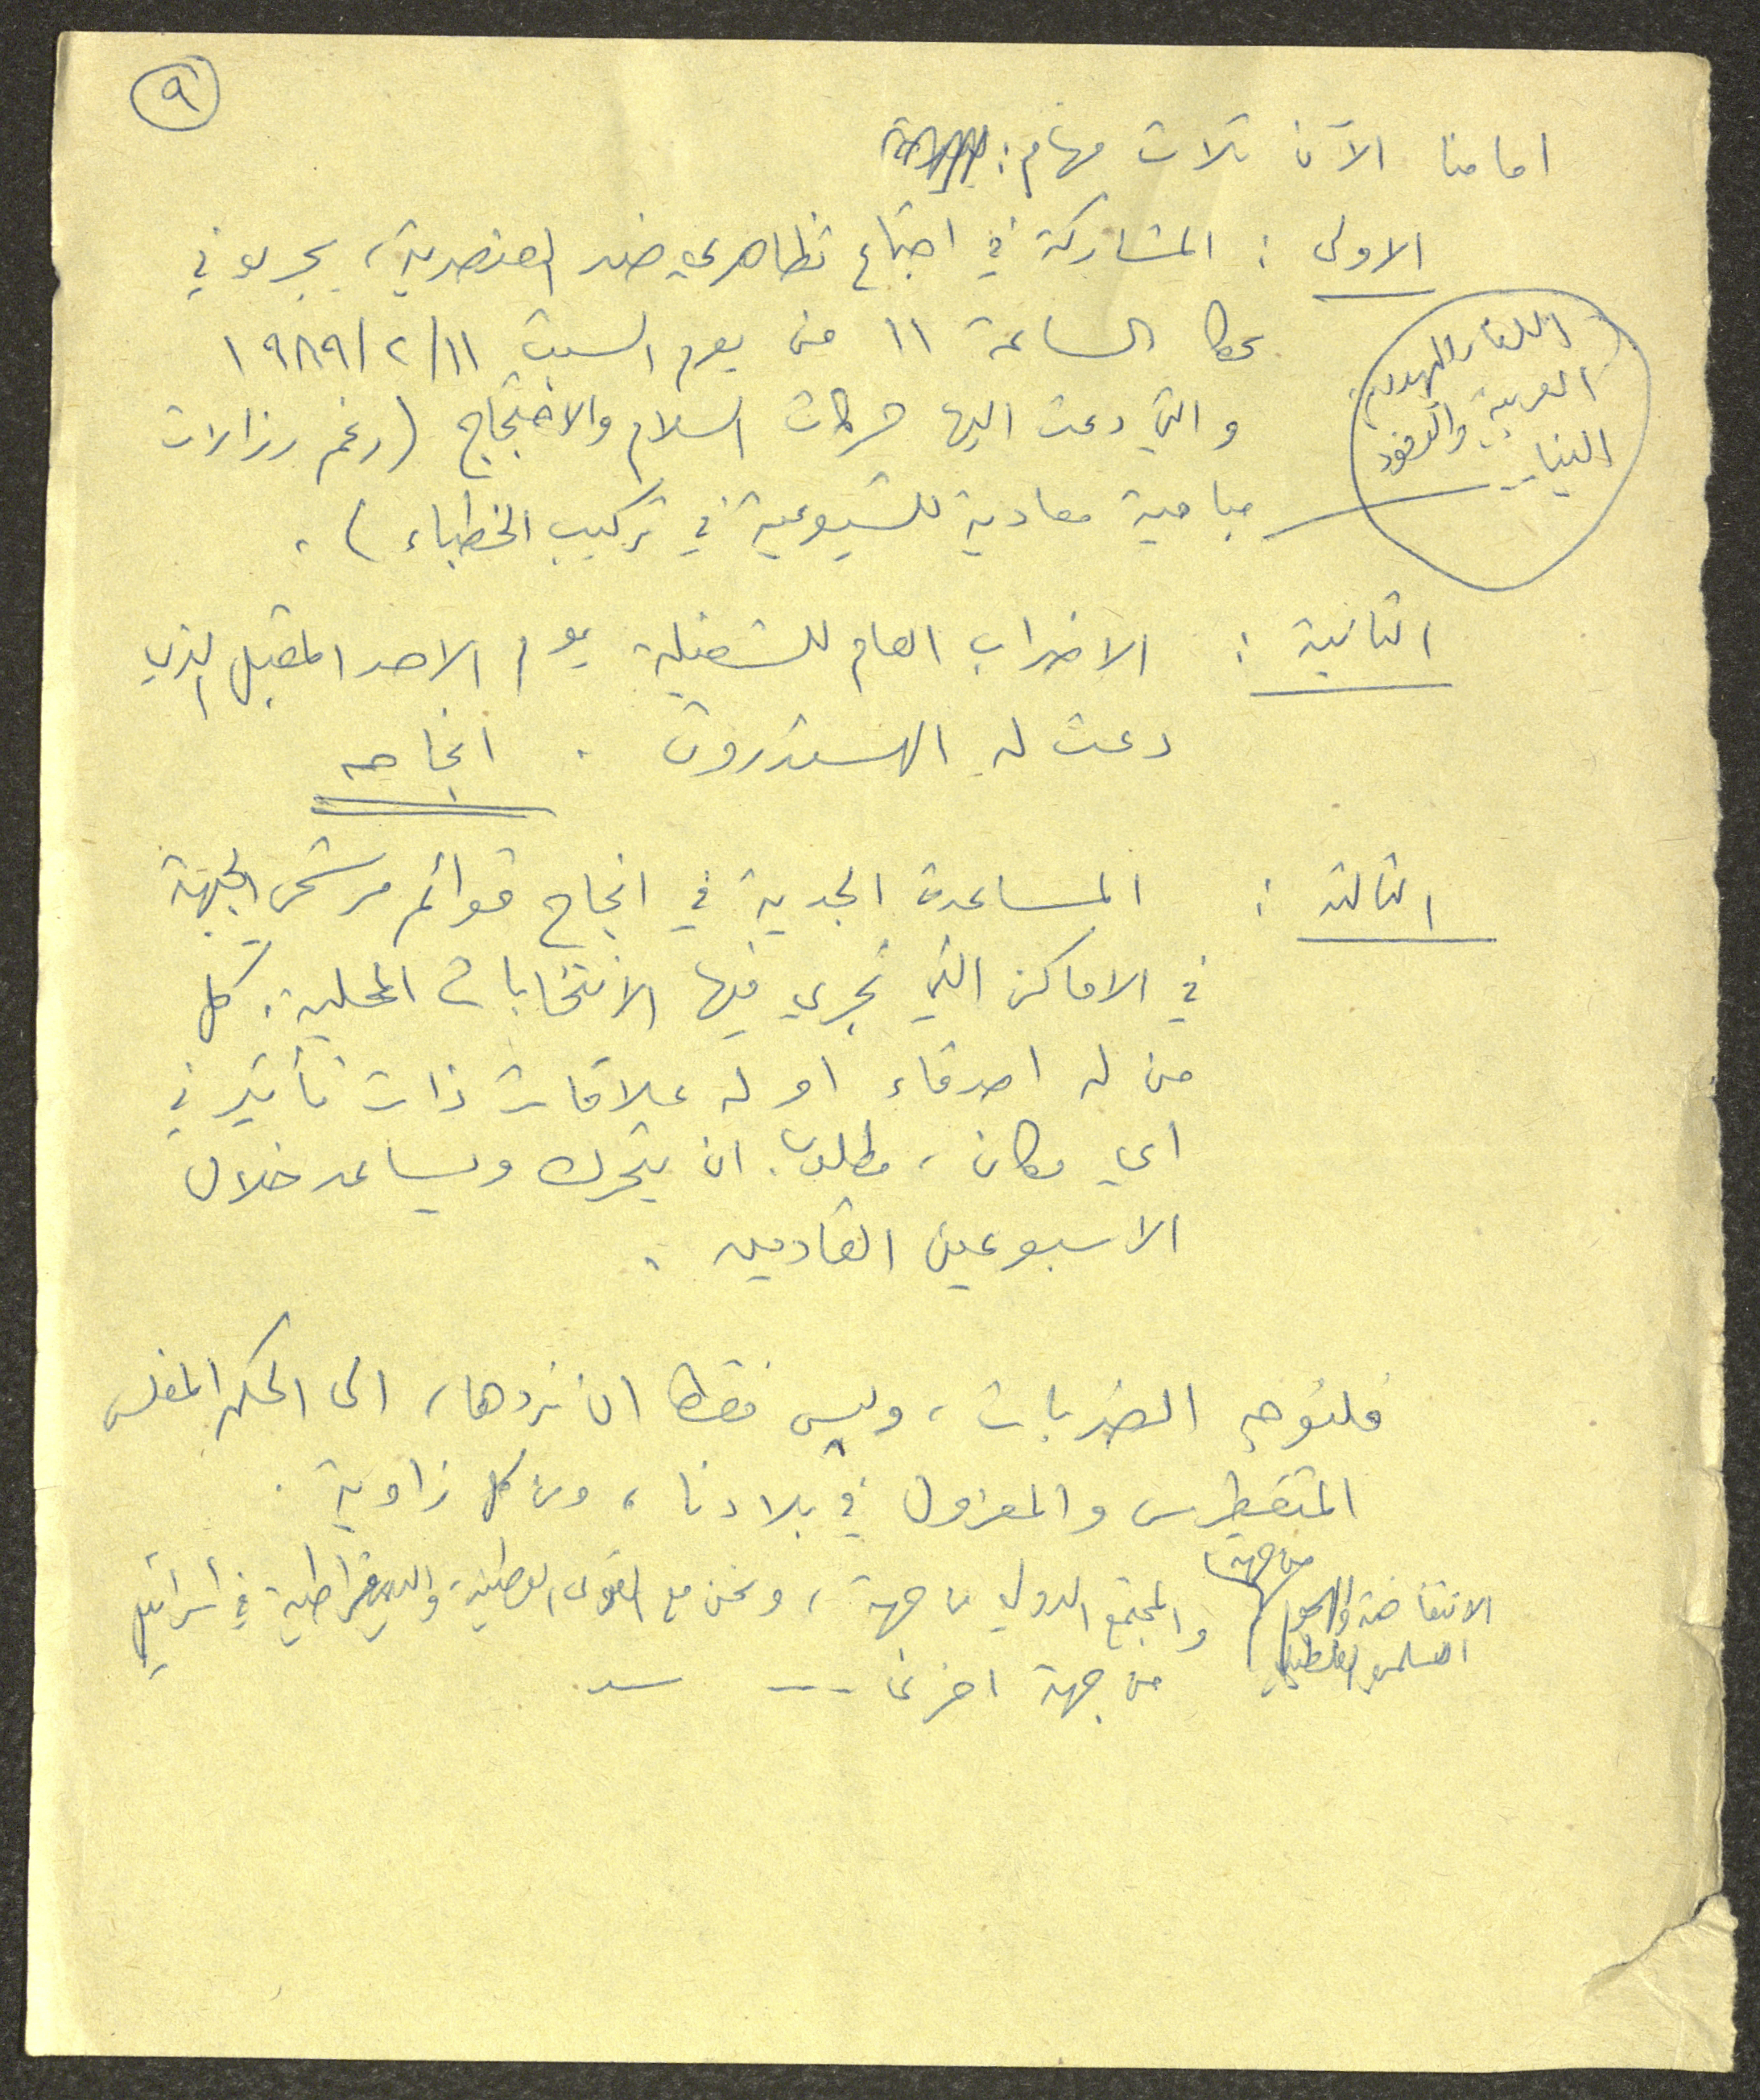 ٩
امامنا الآن ثلاث مهام:
الاولى : المشاركة في اجتماع تظاهري ضد العنصرية، يجري في
عكا الساعة ١١ من يوم السبت ١١/٢/١٩٨٩
والتي دعت اليها حركات السلام والاحتجاج (رغم رذالات
مباحية معادية للشيوعية في تركيب الخطباء).
اللقاء
العربية والوفود
الثانية : الاضراب العام للشغيلة يوم الاحد المقبل الذي
دعت له الهستدروت . انجاحه
الثالثة : المساعدة الجدية في انجاح قوائم مرشحي الجبهة
في الاماكن التي تجري فيها الانتخابات المحلية. كل
من له اصدقاء او له علاقات ذات تأثير في
اي مكان، مطلوب ان يتحرك ويساعد خلال
الاسبوعين القادمين .
فلنوجه الضربات، وليس فقط ان نردها، الى الحكم المفلس
المتغطرس والمعزول في بلادنا، ومن كل زاوية .
من جهة،
الانتفاضة والهجوم
السلمي الفلسطيني
والمجتمع الدولي من جهة، ونحن مع القوى الوطنية والديمقراطية في اسرائيل
من جهة اخرى ---